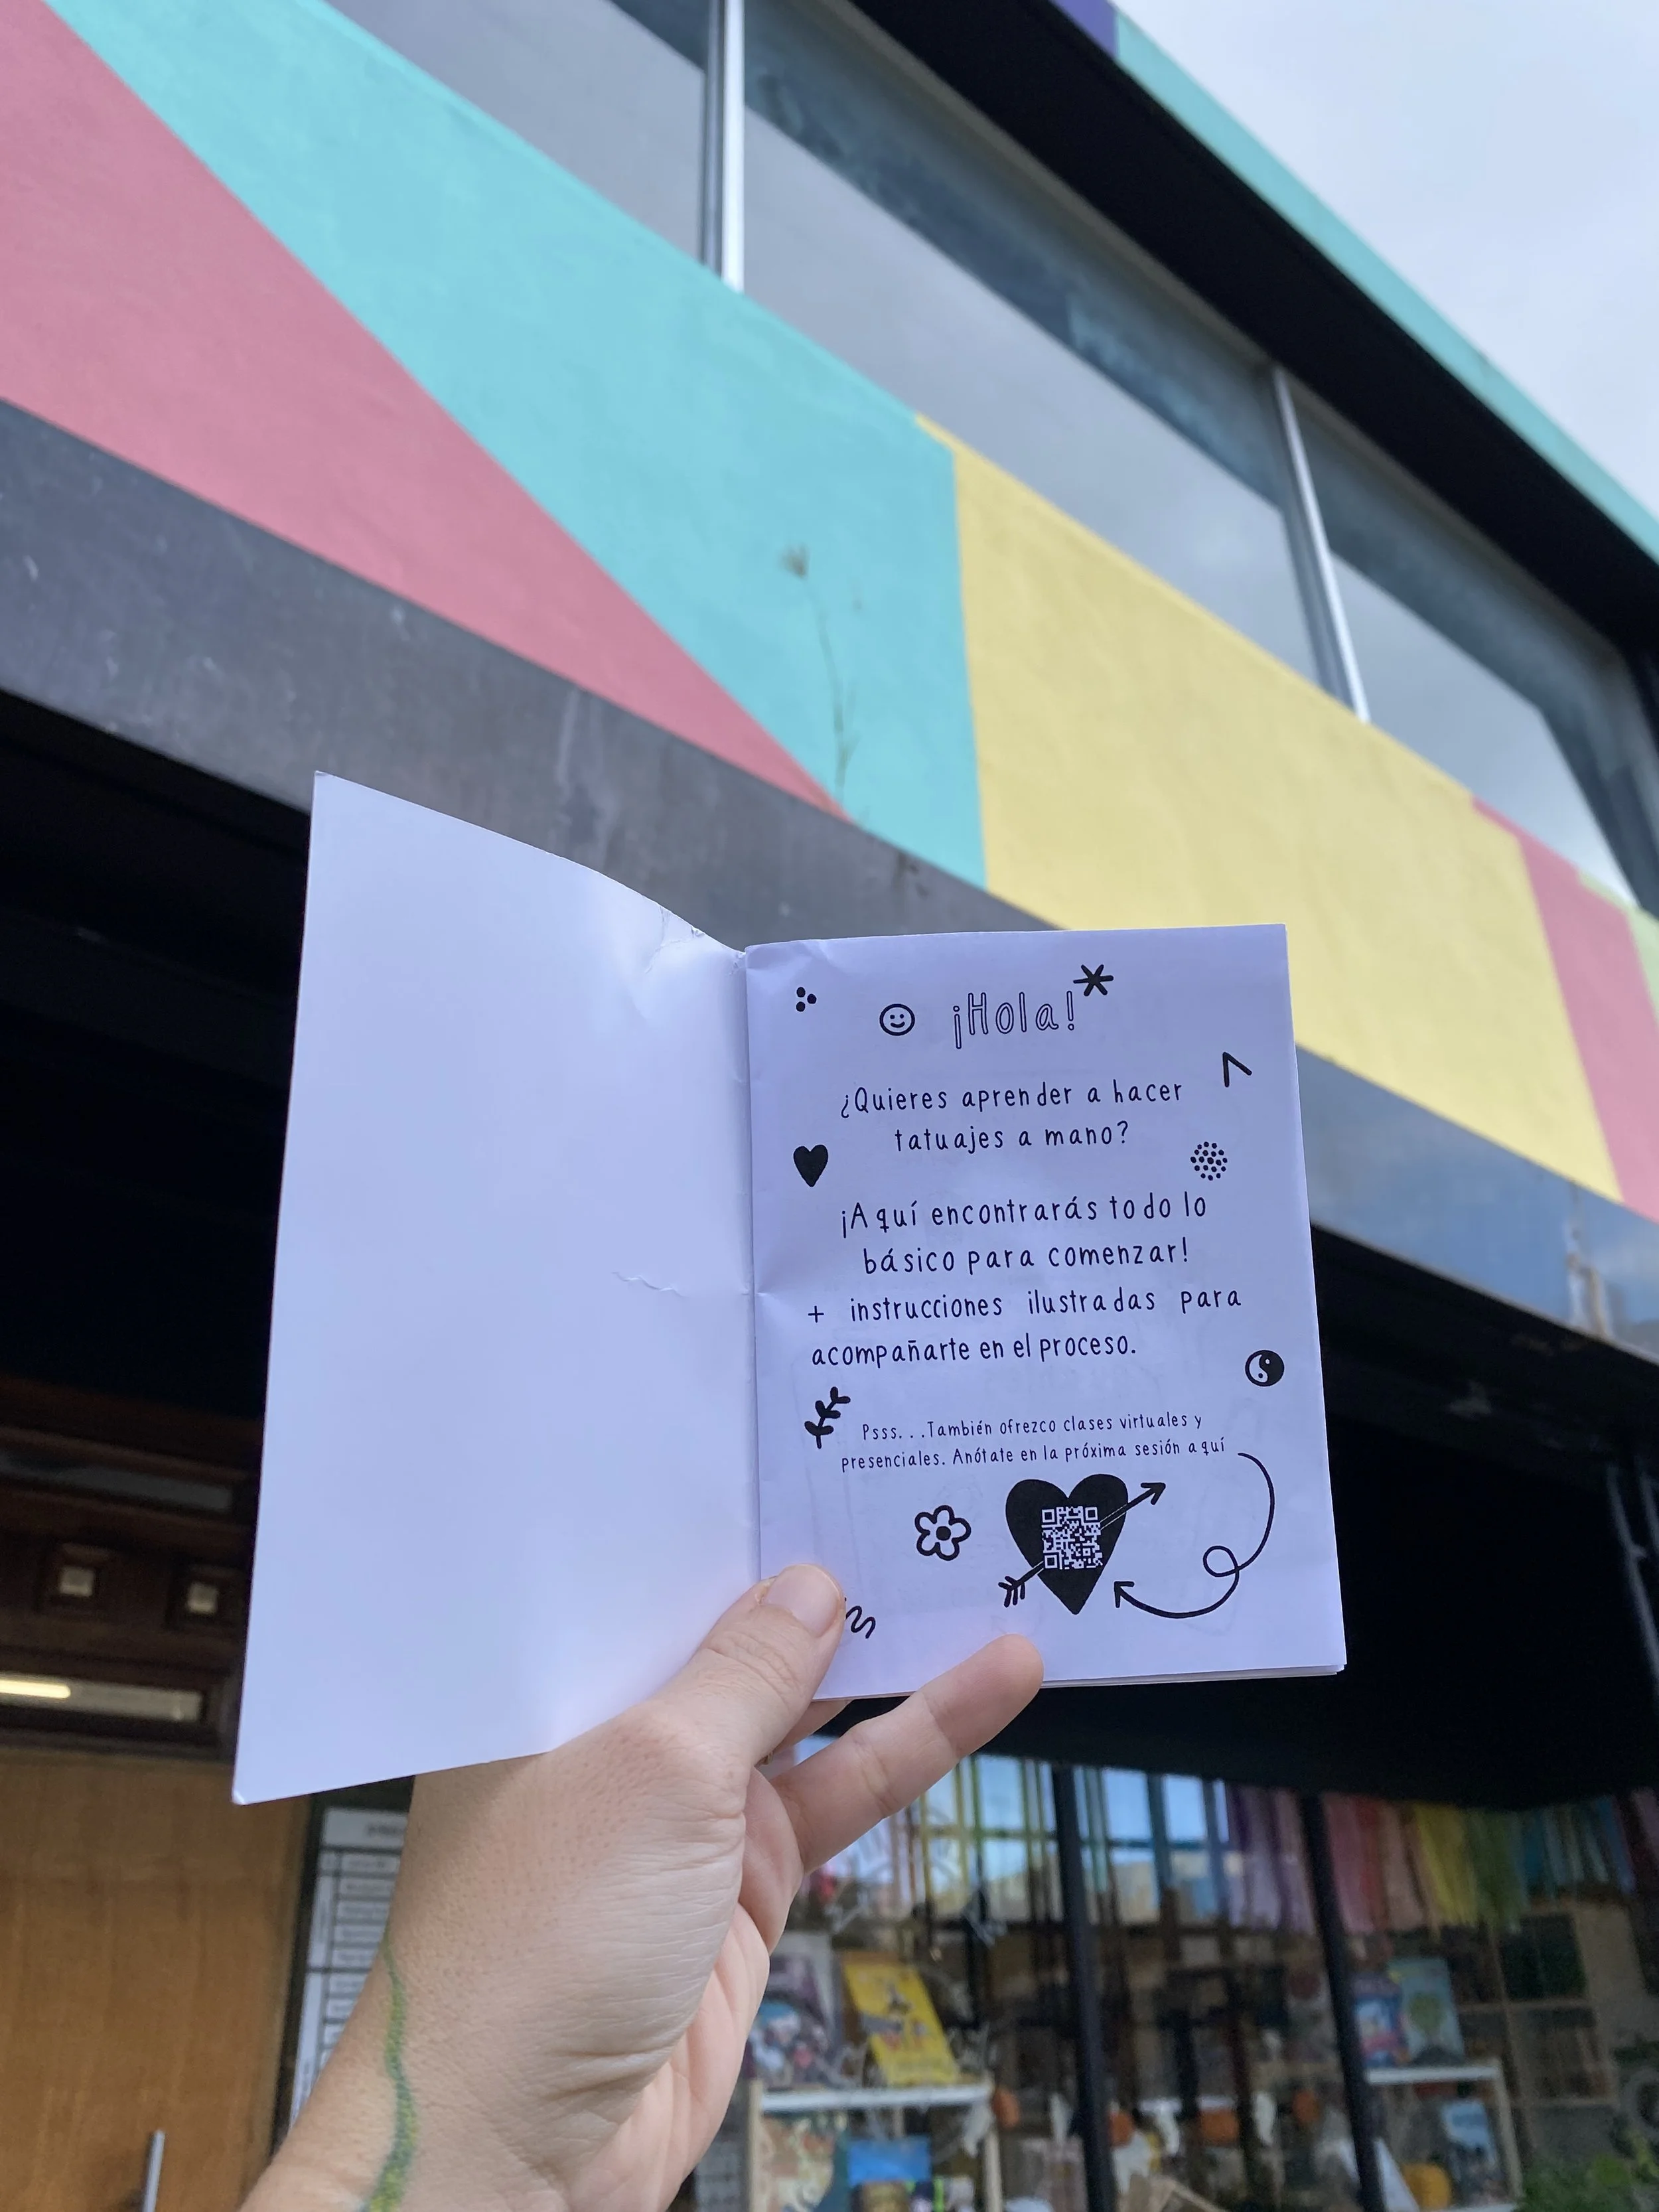 ¡Hola!
¿Quieres aprender a hacer
tatuajes a mano?
¡Aquí encontrarás todo lo
básico para comenzar!
+ instrucciones ilustradas para
acompañarte en el proceso.
Psss...También ofrezco clases virtuales y
presenciales. Anótate en la próxima sesión aquí